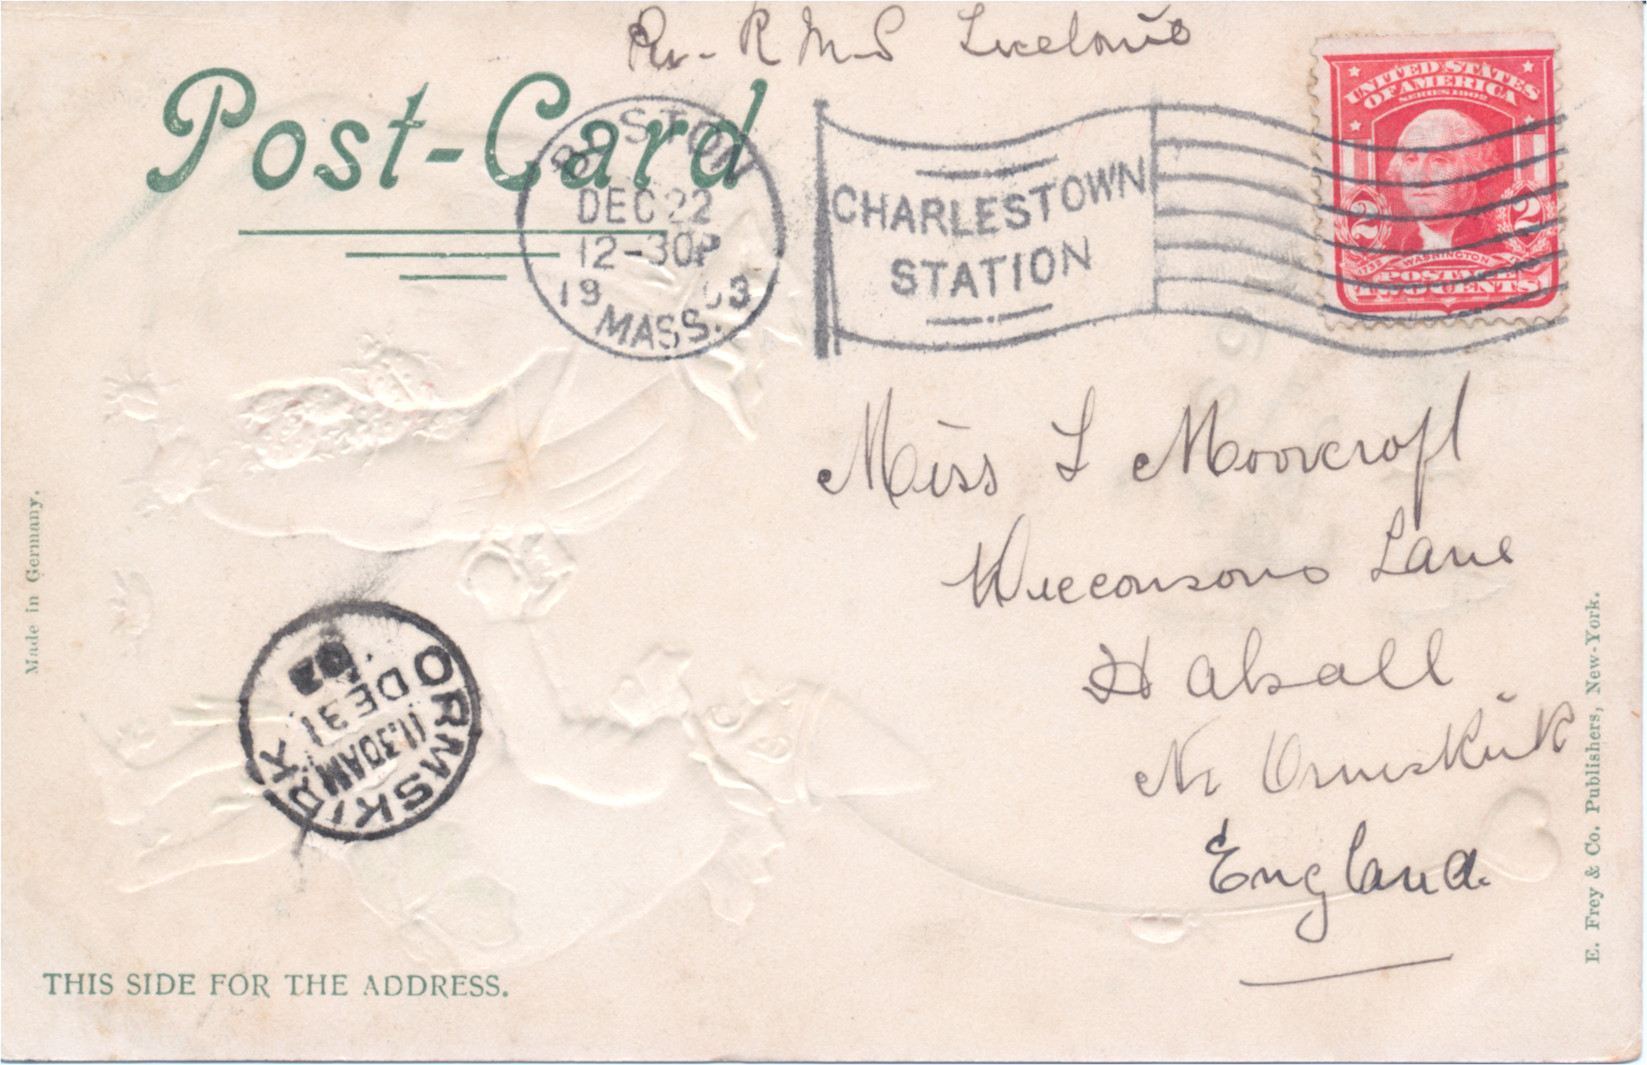 Per R M S
Post-Card
BOSTON
DEC 22
12-30P
19 03
MASS.
CHARLESTOWN
STATION
UNITED STATES
OF AMERICA
SERIES 1902
2 2
1732 WASHINGTON
POSTAGE
TWO CENTS
Miss L Moorcroft
Lane
Halsall
Nr Ormskirk
England.
ORMSKIRK
11.30AM
DE 31
03
Made in Germany.
E. Frey & Co. Publishers, New-York.
THIS SIDE FOR THE ADDRESS.